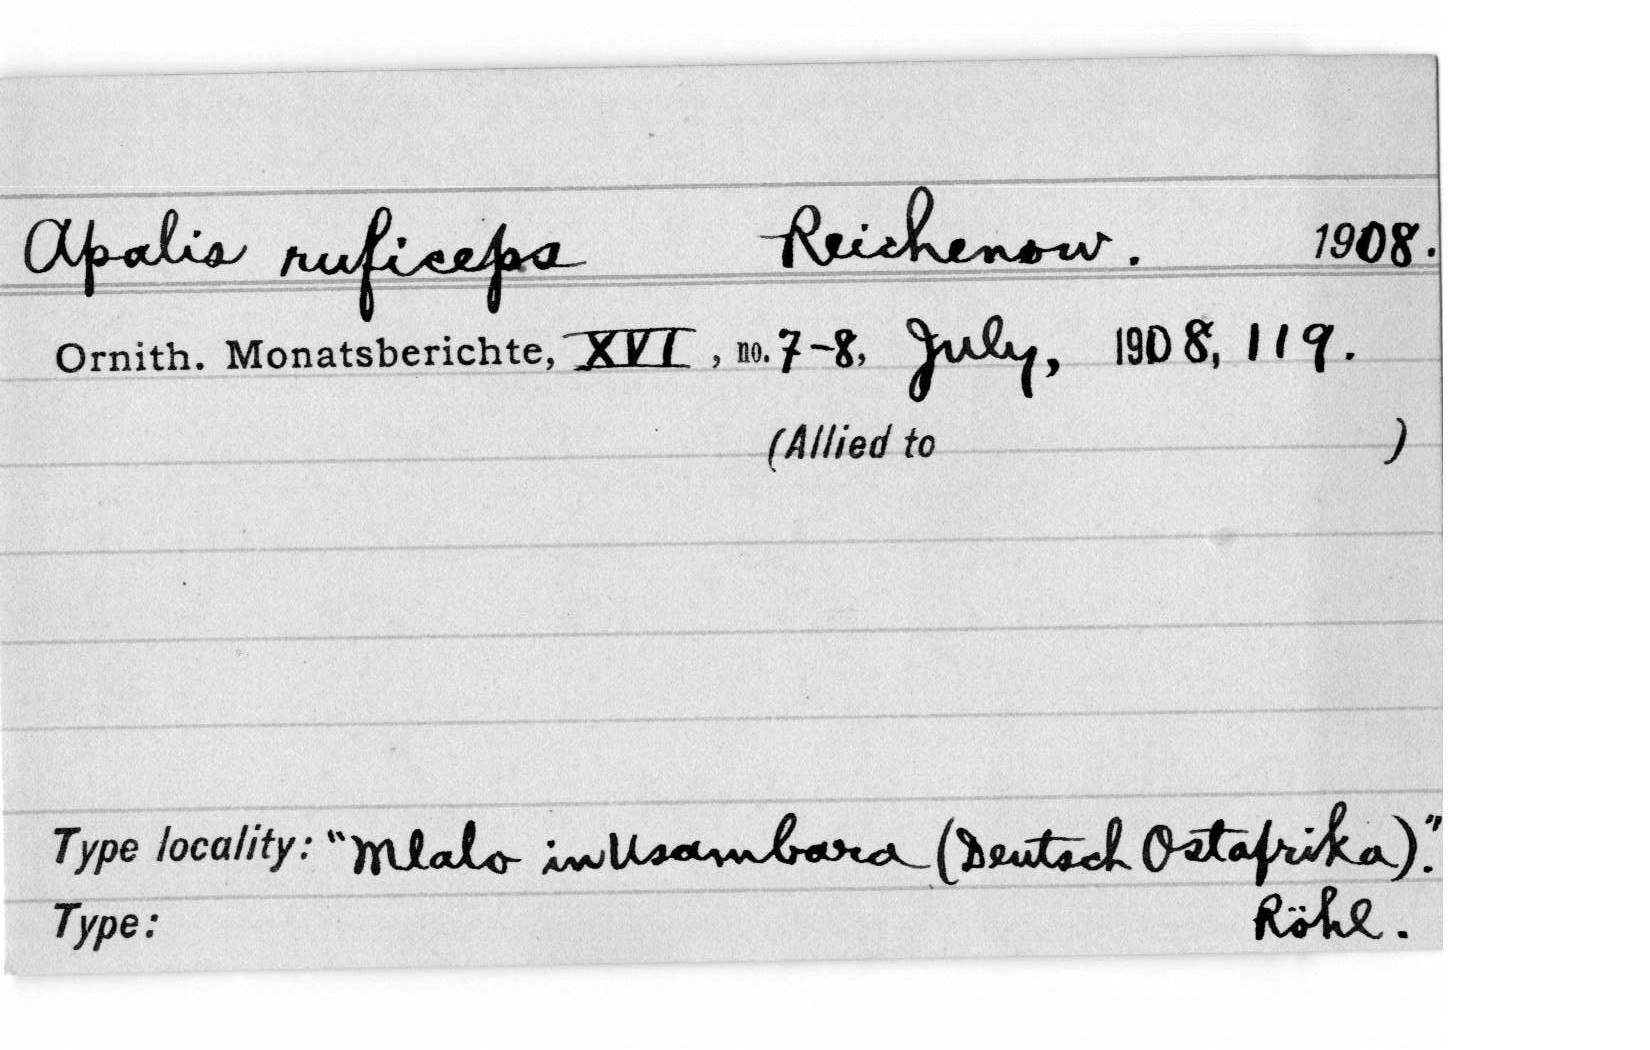 Apalis ruficeps Reichenow. 1908.
Ornith. Monatsberichte, XVI, no. 7-8, July, 1908, 119.
(Allied to )
Type locality: "Mlalo in Usambara (Deutsch Ostafrika)."
Type: Röhl.